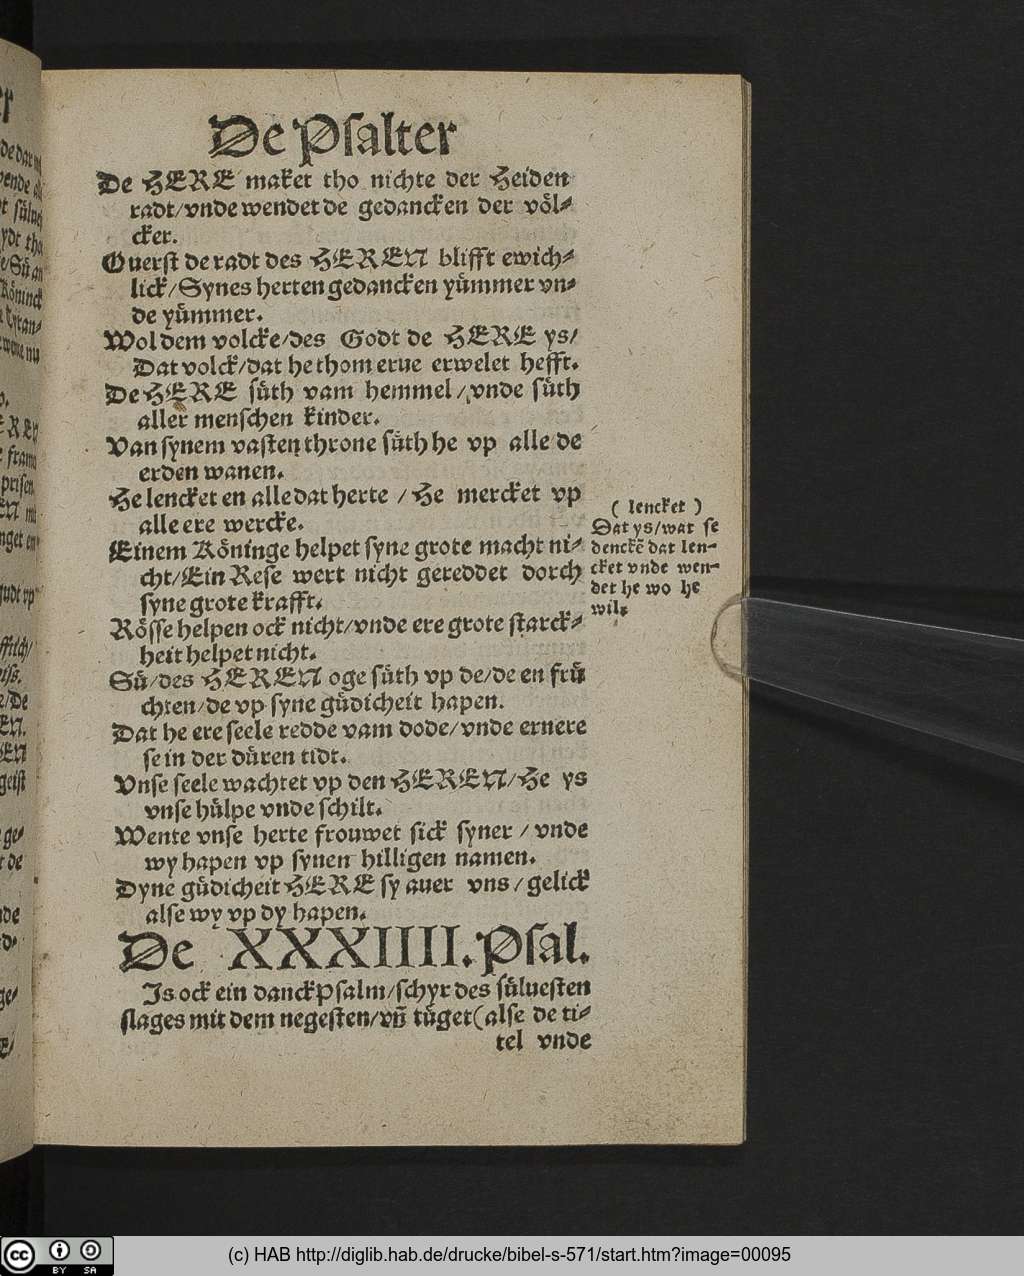 De Psalter
De HERE maket tho nichte der Heiden
radt/vnde wendet de gedancken der völ-
cker.
Ouerst de radt des HEREN blifft ewich-
lick/Synes herten gedancken yümmer vn-
de yümmer.
Wol dem volcke/des Godt de HERE ys/
Dat volck/dat he thom erue erwelet hefft.
De HERE süth vam hemmel/vnde süth
aller menschen kinder.
Van synem vasten throne süth he vp alle de
erden wanen.
He lencket en alle dat herte / He mercket vp
alle ere wercke.
Einem Köninge helpet syne grote macht ni-
cht/Ein Rese wert nicht gereddet dorch
syne grote krafft.
Rösse helpen ock nicht/vnde ere grote starck-
heit helpet nicht.
Sü/des HEREN oge süth vp de/de en frü
chten/de vp syne güdicheit hapen.
Dat he ere seele redde vam dode/vnde ernere
se in der düren tidt.
Vnse seele wachtet vp den HEREN/He ys
vnse hülpe vnde schilt.
Wente vnse herte frouwet sick syner / vnde
wy hapen vp synen hilligen namen.
Dyne güdicheit HERE sy auer vns / gelick
alse wy vp dy hapen.
( lencket )
Dat ys/wat se
denckē dat len-
cket vnde wen-
det he wo he
wil.
De XXXIIII. Psal.
Is ock ein danckpsalm/schyr des süluesten
slages mit dem negesten/vn̄ tüget(alse de ti-
tel vnde
(c) HAB http://diglib.hab.de/drucke/bibel-s-571/start.htm?image=00095
cc BY SA